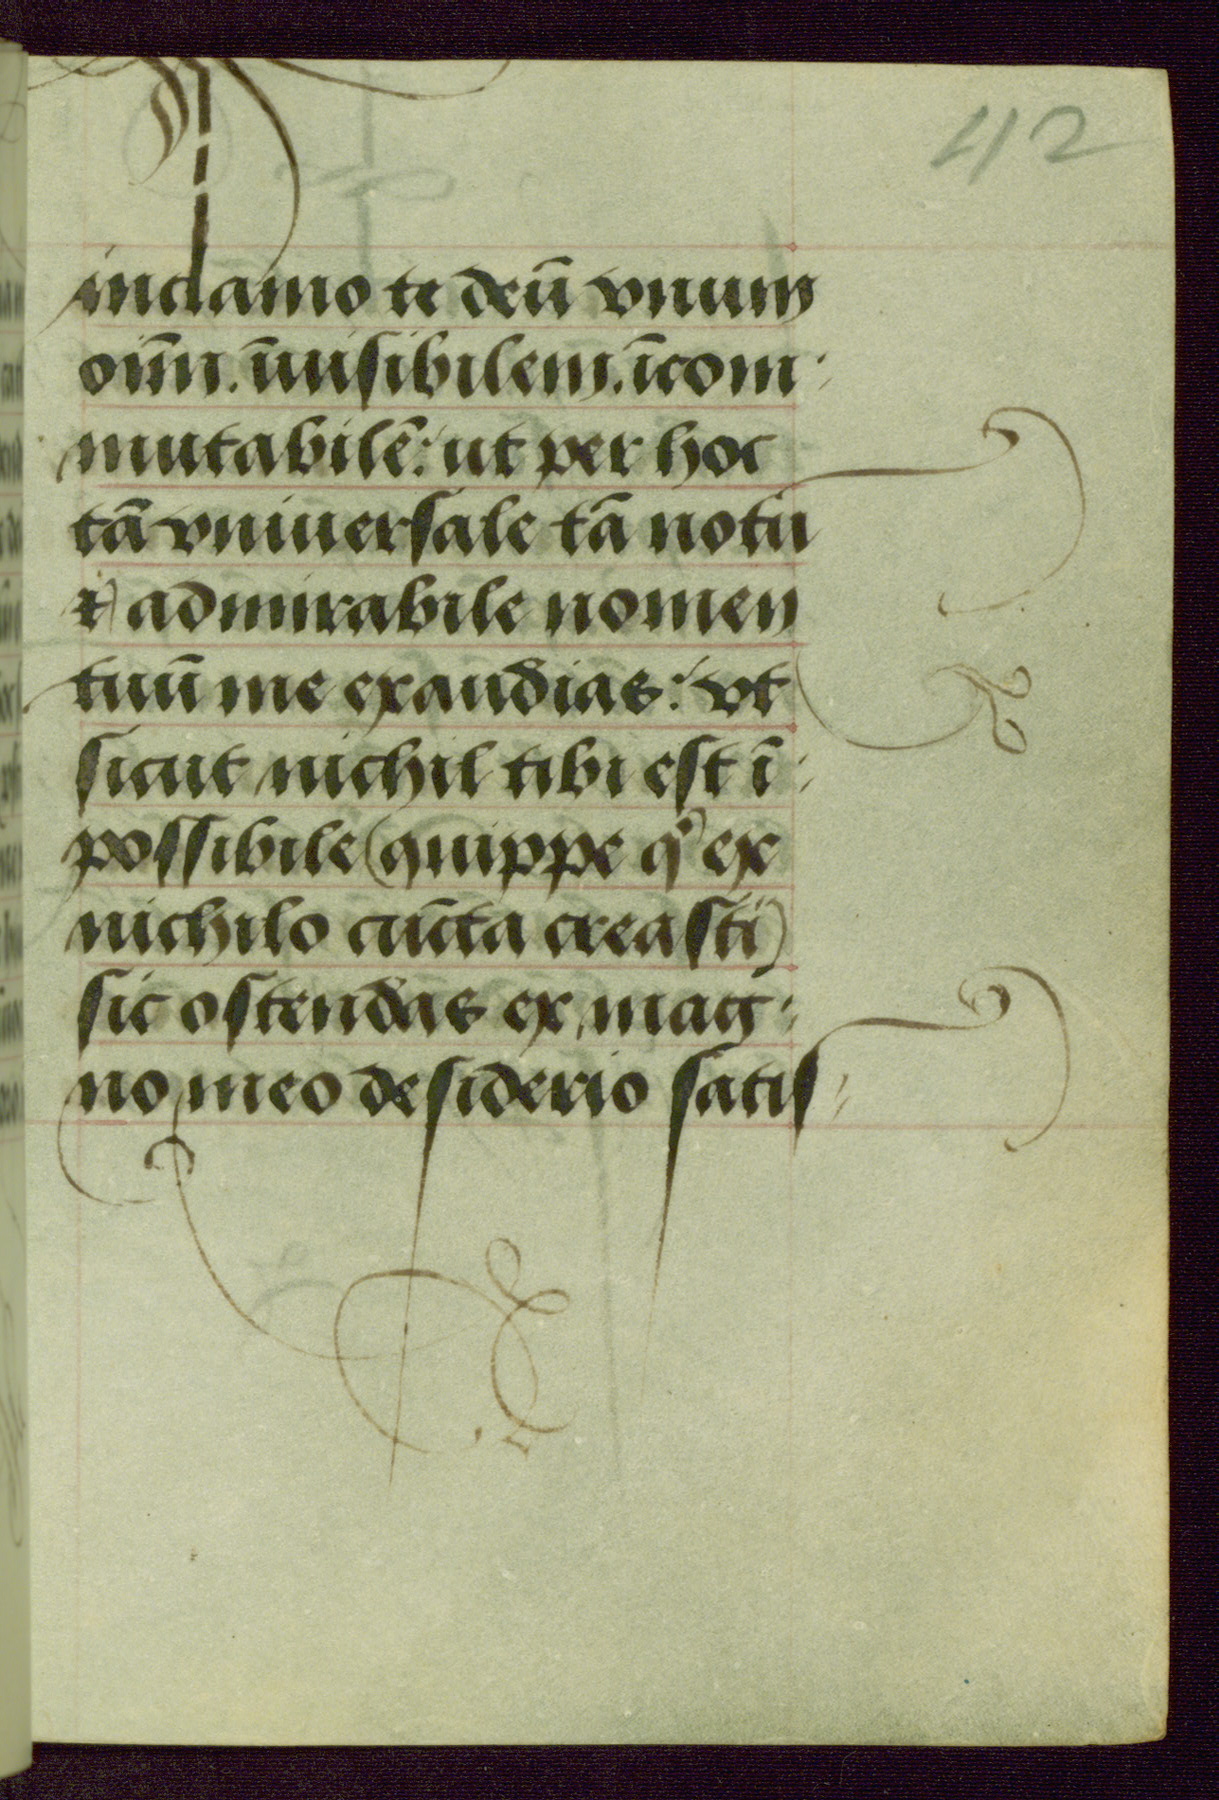 42
inclamo te deū vnum
oīm. īuisibilem. īcom-
mutabilē: ut per hoc
tā vniuersale tā notu
& admirabile nomen
tuū me exaudias: vt
sicut nichil tibi est ī-
possibile (quippe qͥ ex
nichilo cūcta creasti)
sic ostendas ex mag-
no meo desiderio satis-